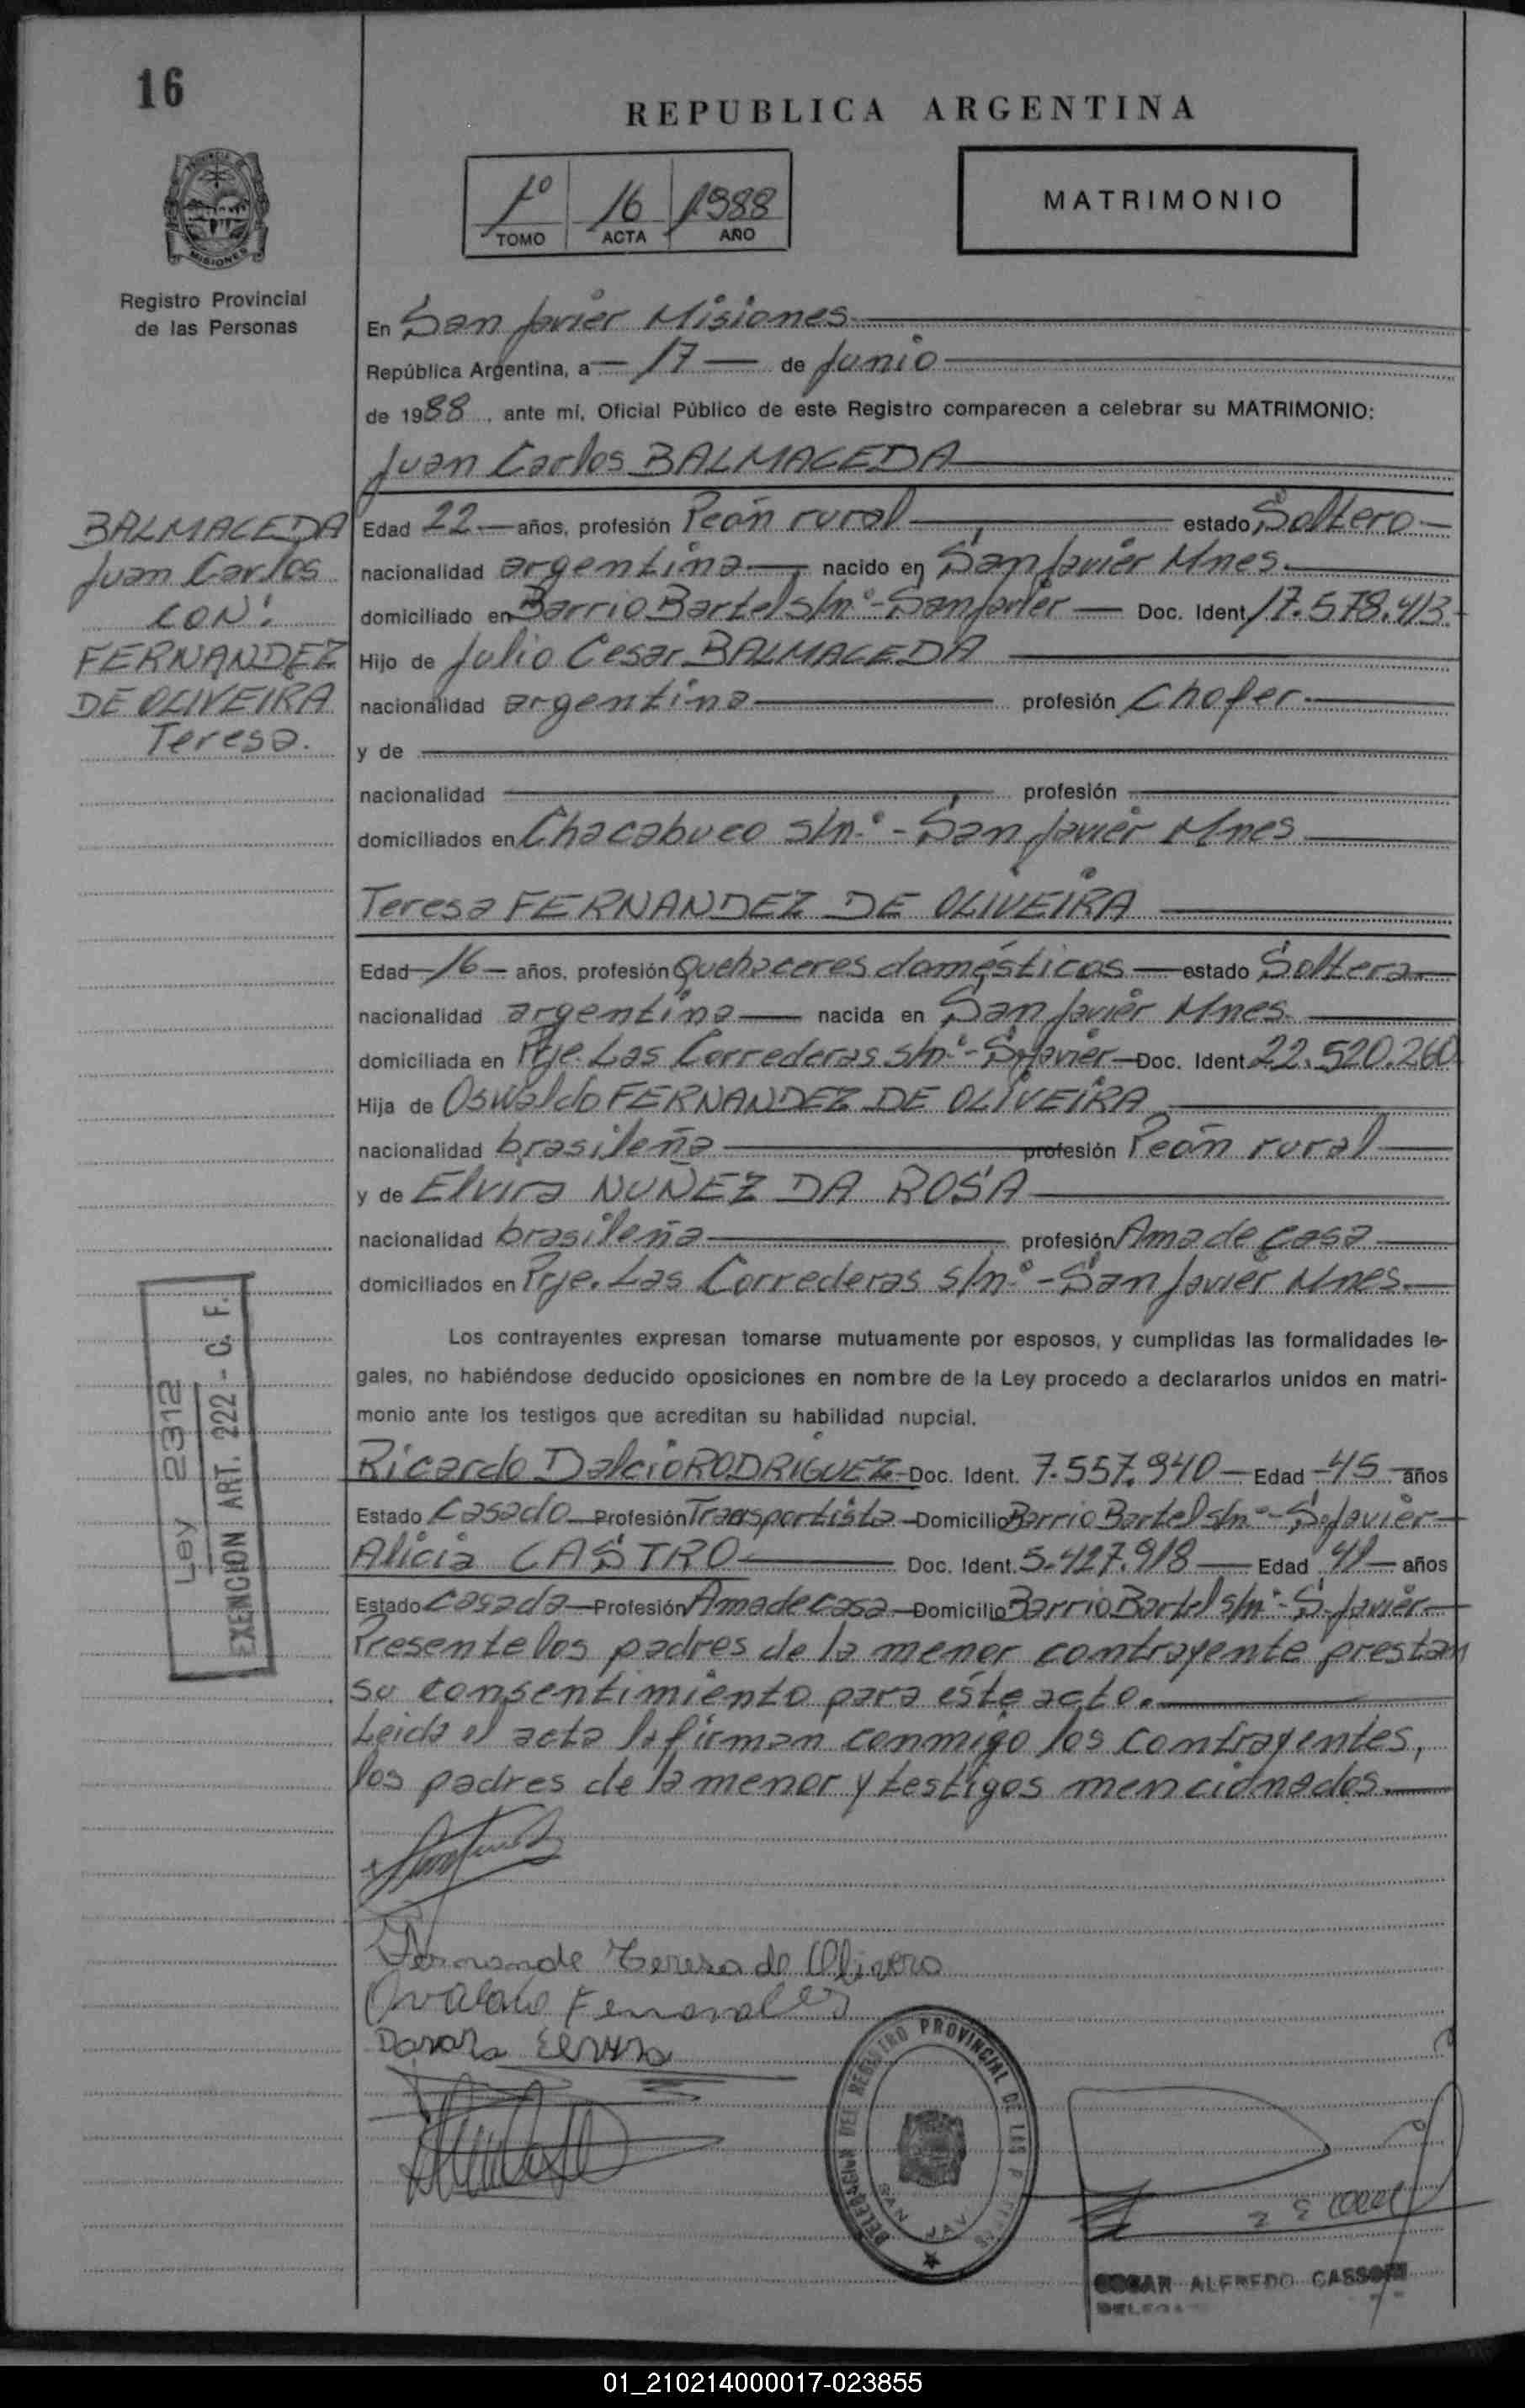 16
REPUBLICA ARGENTINA
1º 16 1988
TOMO ACTA AÑO
MATRIMONIO
PROVINCIA DE
MISIONES
Registro Provincial
de las Personas
En San Javier Misiones
República Argentina, a 17 de Junio
de 1988, ante mí, Oficial Público de este Registro comparecen a celebrar su MATRIMONIO:
Juan Carlos BALMACEDA
BALMACEDA
Juan Carlos
CON:
FERNANDEZ
DE OLIVEIRA
Teresa.
Edad 22 años, profesión Peón rural estado Soltero
nacionalidad argentina nacido en San Javier Mnes.
domiciliado en Barrio Bartel s/nº - San Javier Doc. Ident. 17.578.413
Hijo de Julio Cesar BALMACEDA
nacionalidad argentina profesión Chofer
y de
nacionalidad profesión
domiciliados en Chacabuco s/nº - San Javier Mnes
Teresa FERNANDEZ DE OLIVEIRA
Edad 16 años, profesión Quehaceres domésticos estado Soltera
nacionalidad argentina nacida en San Javier Mnes.
domiciliada en Pje. Las Correderas s/nº - S. Javier Doc. Ident. 22.520.260
Hija de Oswaldo FERNANDEZ DE OLIVEIRA
nacionalidad brasileña profesión Peón rural
y de Elvira NUÑEZ DA ROSA
nacionalidad brasileña profesión Ama de casa
domiciliados en Prje. Las Correderas s/nº - San Javier Mnes.
Los contrayentes expresan tomarse mutuamente por esposos, y cumplidas las formalidades le-
gales, no habiéndose deducido oposiciones en nombre de la Ley procedo a declararlos unidos en matri-
monio ante los testigos que acreditan su habilidad nupcial.
Ley 2312
EXENCION ART. 222 - C. F.
Ricardo Dalcio RODRIGUEZ Doc. Ident. 7.557.940 Edad 45 años
Estado Casado Profesión Transportista Domicilio Barrio Bartel s/nº - S. Javier
Alicia CASTRO Doc. Ident. 5.427.918 Edad 41 años
Estado Casada Profesión Ama de casa Domicilio Barrio Bartel s/nº - S. Javier
Presente los padres de la menor contrayente prestan
su consentimiento para éste acto.
Leida el acta la firman conmigo los contrayentes,
los padres de la menor y testigos mencionados.
Fernande Teresa de Olivera
Darosa Elvira
DELEGACION DEL REGISTRO PROVINCIAL DE LAS
SAN JAV
ALFREDO CASSONI
01_210214000017-023855